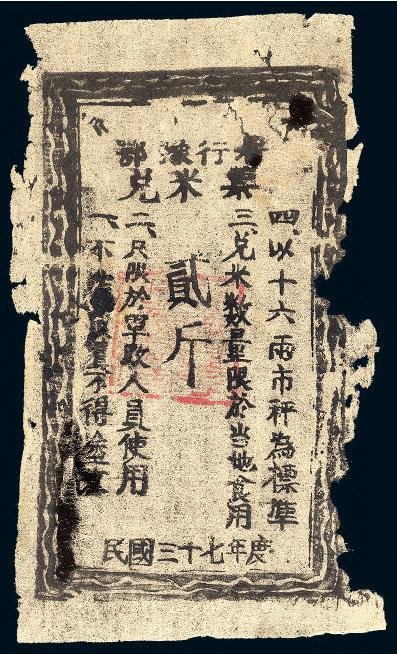 鄂豫行
兑米票
一、不 不得
二、只限於軍政人員使用
貳斤
三、兑米数量限於当地食用
四、以十六兩市秤為標準
民國三十七年度